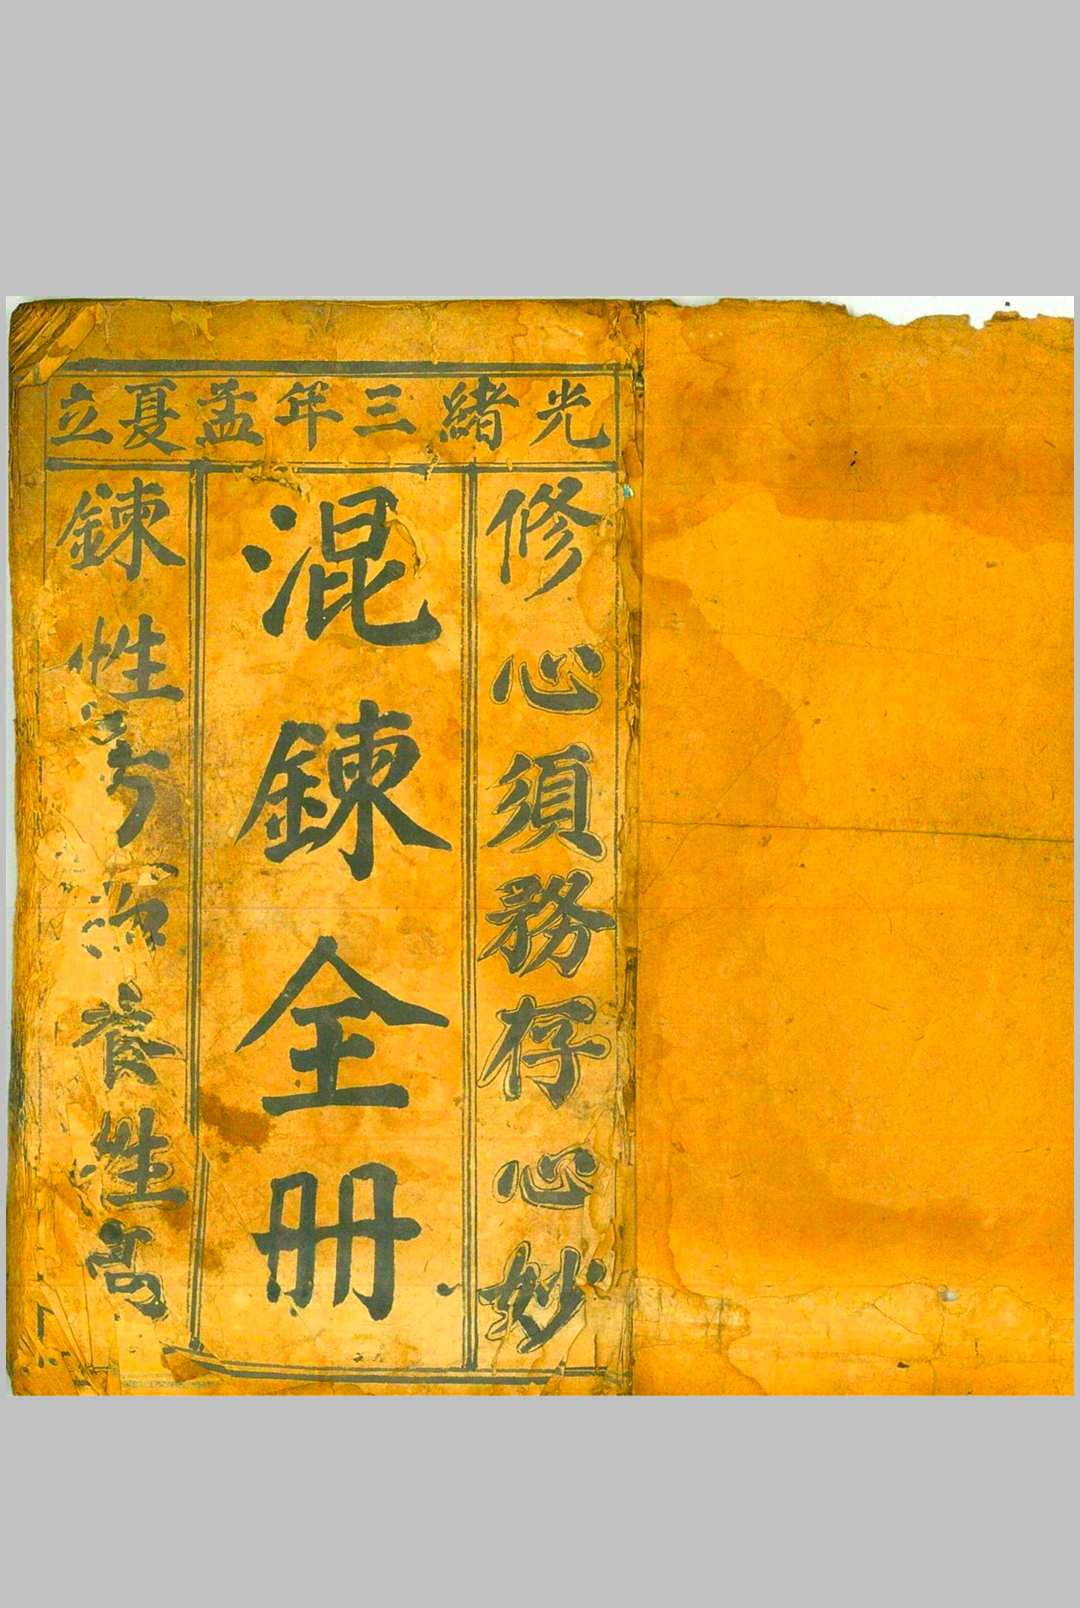 光緒三年孟夏立
修心須務存心妙
混鍊全冊
鍊性 養性高